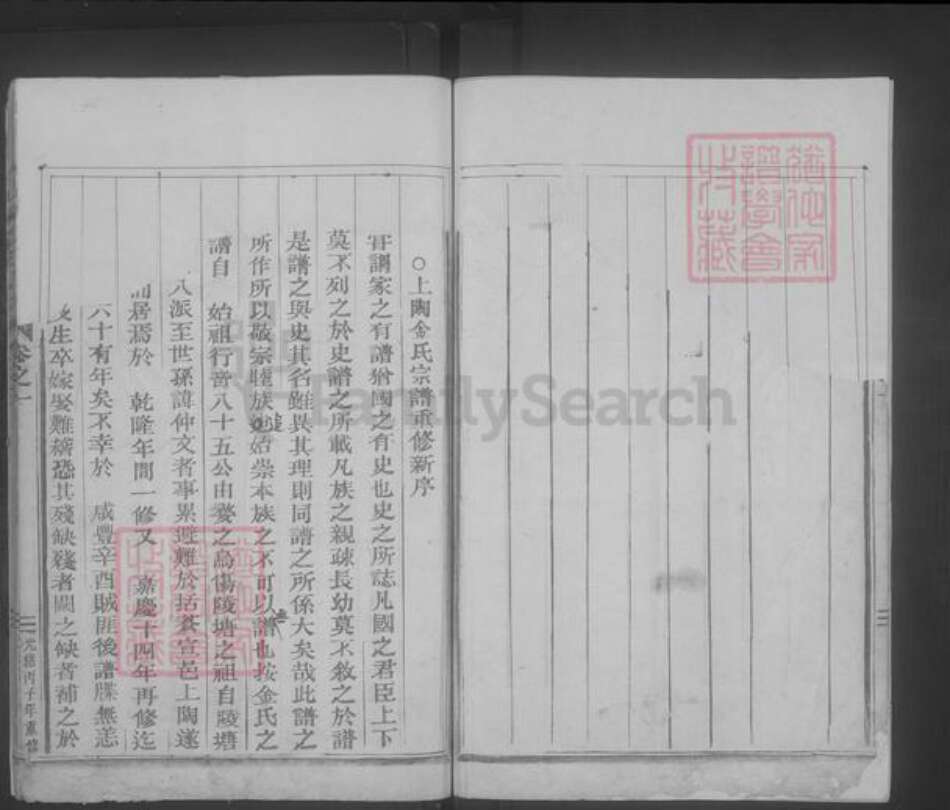 ○上陶金氏宗譜重修新序
謂家之有譜猶國之有史也史之所誌凡國之君臣上下
莫不列之於史譜之所載凡族之親疎長幼莫不敘之於譜
是譜之與史其名雖異其理則同譜之所係大矣哉此譜之
所作所以敬宗睦族始崇本族之不可以譜也按金氏之
譜自 始祖行晉八十五公由婺之烏傷陵塘之祖自陵塘
八派至世孫諱仲文者事累避難於括蒼宣邑上陶遂
居焉於 乾隆年間一修又 嘉慶十四年再修迄
六十有年矣不幸於 咸豐辛酉賊匪後譜牒無恙
生卒嫁娶難稽恐其殘缺殘者闕之缺者補之於
卷之一
光緒丙子年重修
譜學會
收藏
FamilySearch